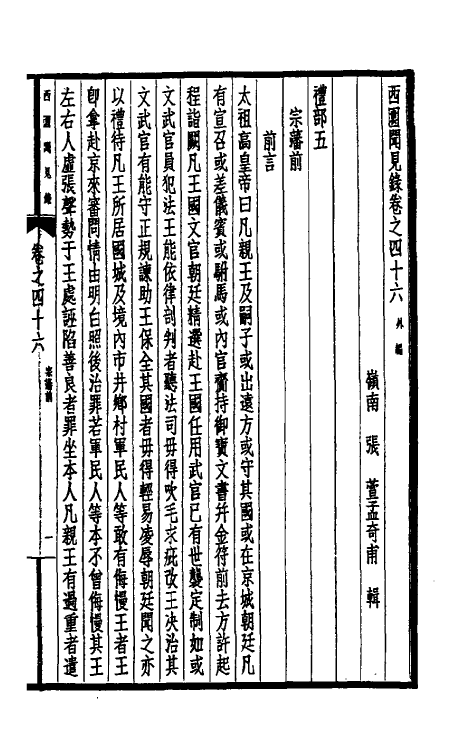 西園聞見錄卷之四十六 外編
嶺南 張 萱孟奇甫 輯
禮部五
宗藩前
前言
太祖高皇帝曰凡親王及嗣子或出遠方或守其國或在京城朝廷凡
有宣召或差儀賓或駙馬或內官齎持御寶文書幷金符前去方許起
程詣闕凡王國文官朝廷精選赴王國任用武官已有世襲定制如或
文武官員犯法王能依律剖判者聽法司毋得吹毛求疵改王決治其
文武官有能守正規諫助王保全其國者毋得輕易凌辱朝廷聞之亦
以禮待凡王所居國城及境內市井鄉村軍民人等敢有侮慢王者王
卽拿赴京來審問情由明白照後治罪若軍民人等本不曾侮慢其王
左右人虛張聲勢于王處誣陷善良者罪坐本人凡親王有過重者遣
西園聞見錄
卷之四十六 宗藩前
一